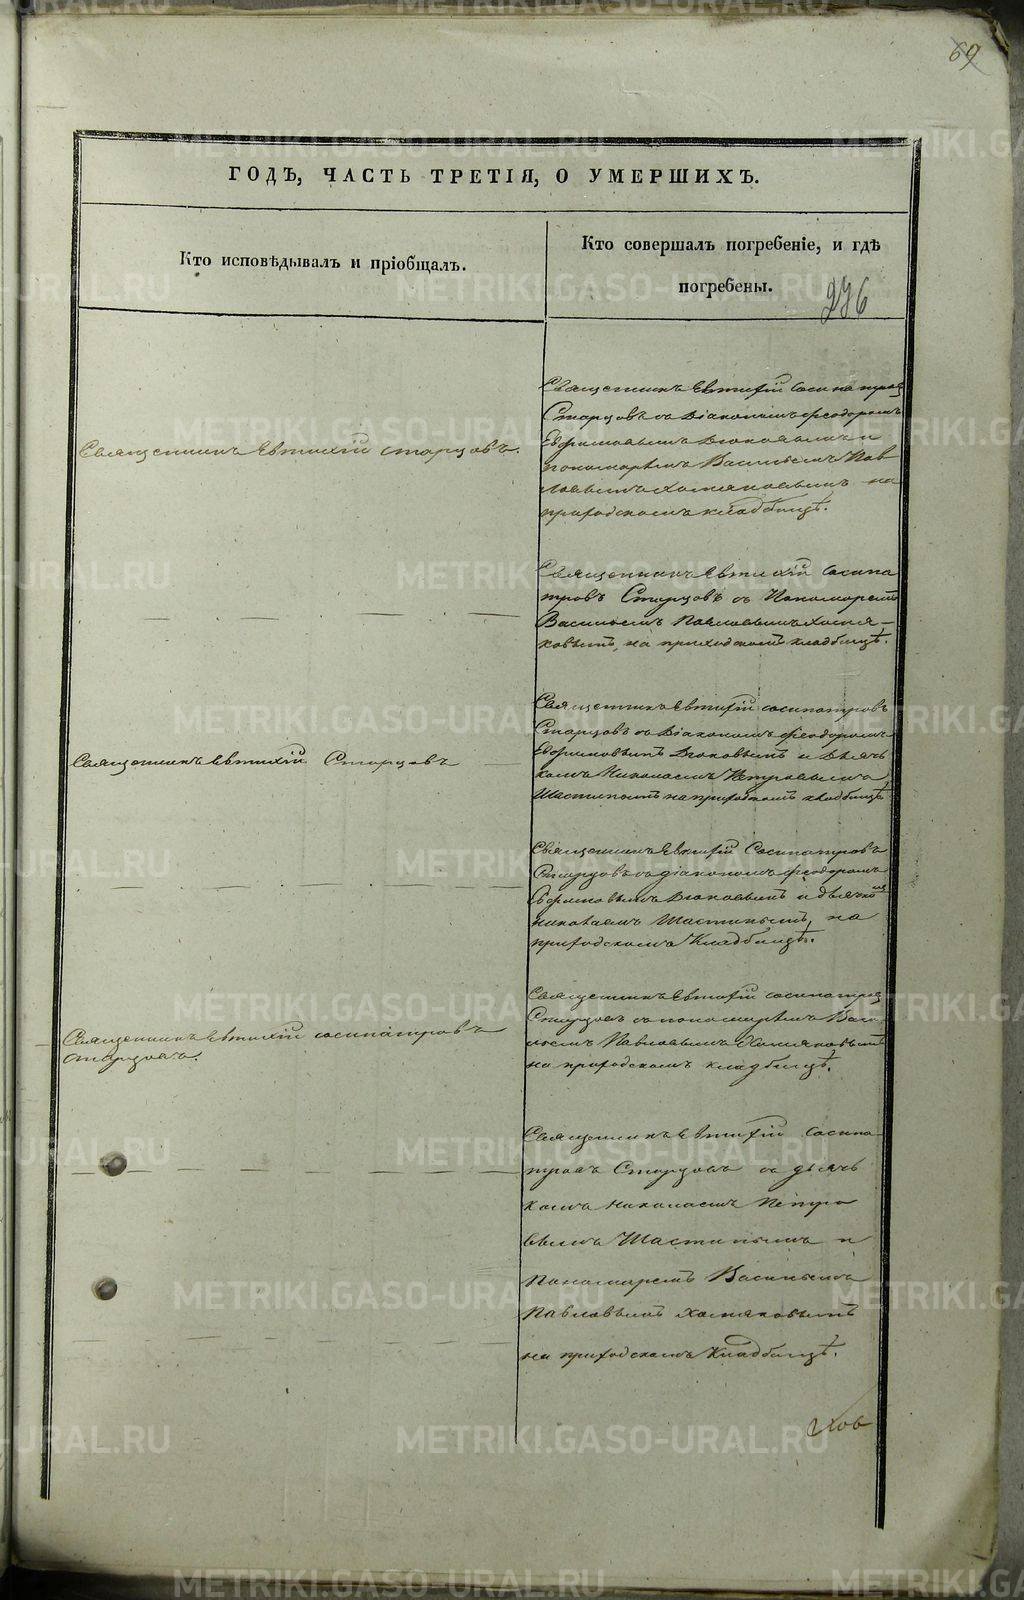 69
ГОДЪ, ЧАСТЬ ТРЕТІЯ, О УМЕРШИХЪ.
Кто исповѣдывалъ и пріобщалъ.
Кто совершалъ погребеніе, и гдѣ
погребены.
276
Священникъ Евтихій Старцовъ.
Священникъ Евтихій Сосипатров
Старцовъ съ Діакономъ Феодоромъ
Ефимовымъ и
пономаремъ Васильемъ Пав
ловымъ Хомяковымъ на
приходскомъ кладбищѣ.
Священникъ Евтихій Сосипа
тровъ Старцовъ съ Пономаремъ
Васильемъ Павловымъ Хомя-
ковымъ, на приходскомъ кладбищѣ.
Священникъ Евтихій Старцовъ
Священникъ Евтихій Сосипатровъ
Старцовъ съ Діакономъ Феодоромъ
Ефимовымъ и Дьяч
комъ Николаемъ Петровымъ
Шастинымъ на приходскомъ кладбищѣ
Священникъ Евтихій Сосипатровъ
Старцовъ съ діакономъ Феодоромъ
Ефимовымъ и дьячкомъ
Николаемъ Шастинымъ, на
приходскомъ Кладбищѣ.
Священникъ Евтихій Сосипатровъ
Старцовъ.
Священникъ Евтихій Сосипатров
Старцовъ съ пономаремъ Васи
льемъ Павловымъ Хомяковымъ
на приходскомъ кладбищѣ.
Священникъ Евтихій Сосипа
тровъ Старцовъ съ дьяч
комъ Николаемъ Петро
вымъ Шастинымъ и
Пономаремъ Васильемъ
Павловымъ Хомяковымъ
на приходскомъ Кладбищѣ.
METRIKI.GASO-URAL.RU